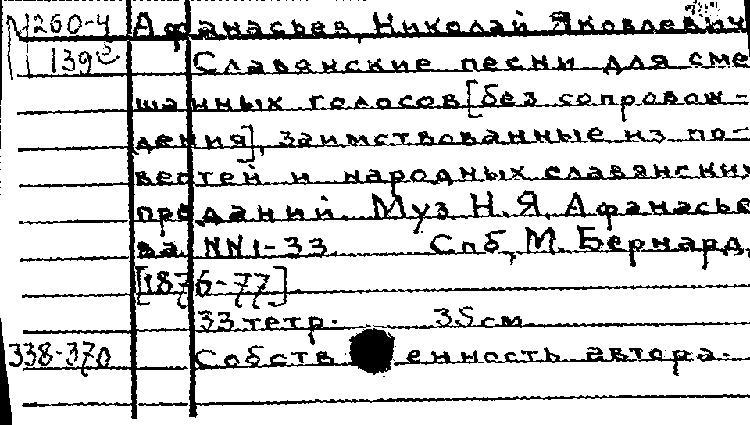 М260-4 Афанасьев, Николай Яковлевич
139 Славянские песни для сме
шанных голосов [без сопровож-
дения], заимствованные из по-
вестей и народных славянских
преданий. Муз Н.Я. Афанасье
ва. NN1-33. Спб, М. Бернард,
[1876-77].
33 тетр. 35 см.
338-370 Собственность автора.